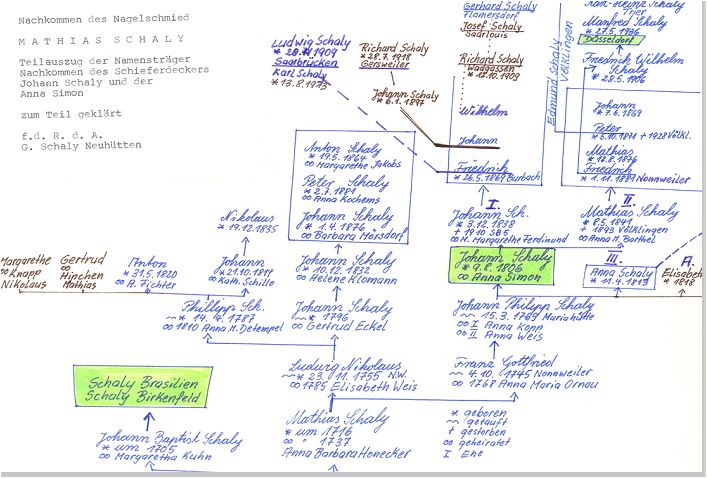 Nachkommen des Nagelschmied
MATHIAS SCHALY
Teilauszug der Namensträger
Nachkommen des Schieferdeckers
Johann Schaly und der
Anna Simon
zum Teil geklärt
f.d. R. d. A.
G. Schaly Neuhütten
Ludwig Schaly
1909
Saarbrücken
Karl Schaly
* 13.8.1973
Richard Schaly
* 28.7.1918
Gersweiler
Johann Schaly
* 6.1.1897
Gerhard Schaly
Flamersdorf
Josef Schaly
Saarlouis
Richard Schaly
Wadgassen
* 12.10.1909
Wilhelm
Johann
Friedrich
* 26.5.1869 Burbach
Edmund Schaly
Völklingen
Karl-Heinz Schaly
Trier
Manfred Schaly
* 27.5.1936
Düsseldorf
Friedrich Wilhelm
Schaly
* 28.5.1906
Johann
* 7.6.1869
Peter
* 5.10.1871 + 1928 Völkl.
Mathias
* 12.8.1876
Friedrich
* 1.11.1887 Nonnweiler
Anton Schaly
* 19.5.1864
∞ Margarethe Jakobs
Peter Schaly
* 2.7.1881
∞ Anna Kochems
Johann Schaly
* 1.4.1876
∞ Barbara Mörsdorf
Nikolaus
* 19.12.1835
I.
Johann Sch.
* 3.12.1838
+ 1910 SB5
∞ M. Margarethe Ferdinand
II.
Mathias Schaly
* 8.5.1841
+ 1893 Völklingen
∞ Anna M. Barthel
Margarethe
∞ Knapp
Nikolaus
Gertrud
∞
Hinchen
Mathias
Anton
* 31.5.1820
∞ A. Fichter
Johann
* 21.10.1819
∞ Kath. Schillo
Johann Schaly
* 10.12.1832
∞ Helene Klomann
Johann Schaly
* 9.8.1806
∞ Anna Simon
III.
Anna Schaly
* 11.4.1813
A.
Elisabeth
* 1818
Phillipp Sch.
~ * 14.4.1787
∞ 1810 Anna M. Detempel
Johann Schaly
~ * 1796
∞ Gertrud Eckel
Johann Philipp Schaly
~ 15.3.1769 Mariahütte
∞ I Anna Kopp
∞ II Anna Weis
Schaly Brasilien
Schaly Birkenfeld
Ludwig Nikolaus
~ * 23.11.1755 N.W.
∞ 1785 Elisabeth Weis
Franz Gottfried
~ 4.10.1745 Nonnweiler
∞ 1768 Anna Maria Ornau
Johann Baptist Schaly
* um 1705
∞ Margaretha Kuhn
Mathias Schaly
* um 1716
∞ " 1737
Anna Barbara Honecker
* geboren
~ getauft
+ gestorben
∞ geheiratet
I Ehe